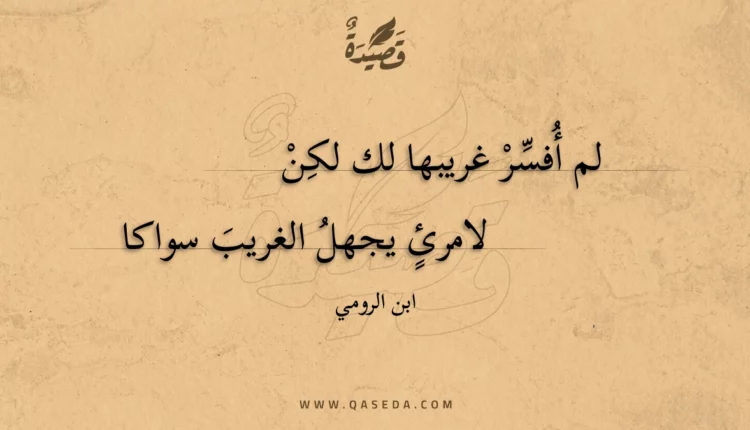 قَصِيْدَةٌ
لم أُفسِّرْ غريبها لك لكِنْ
لامرئٍ يجهلُ الغريبَ سواكا
ابن الرومي
WWW.QASEDA.COM